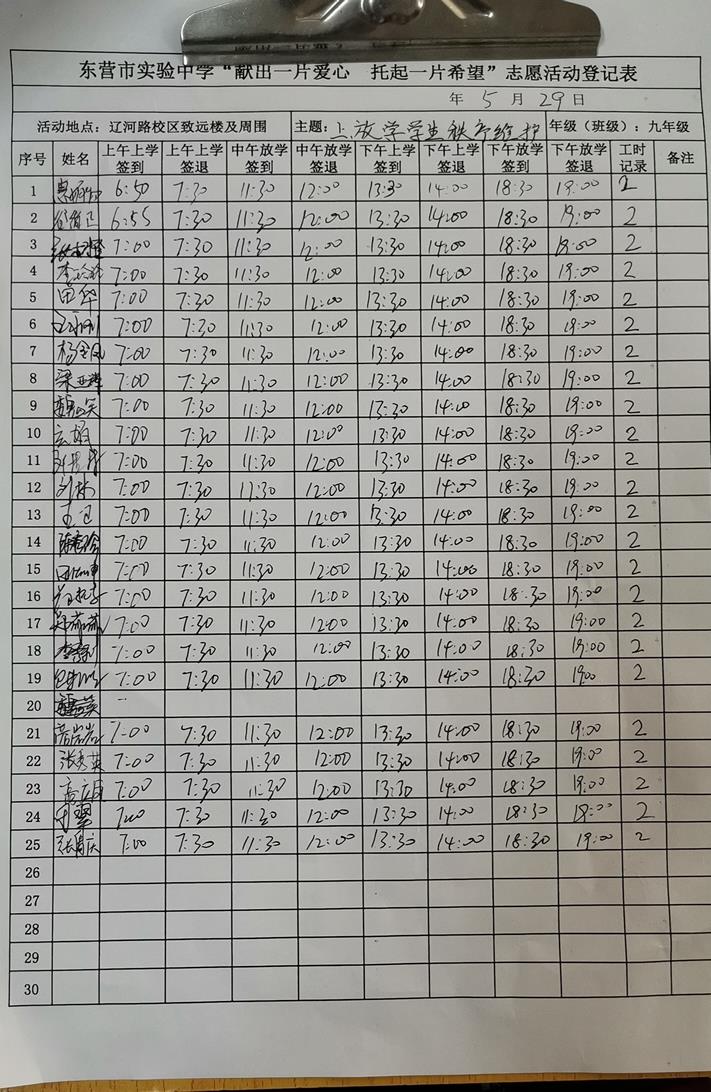 东营市实验中学“献出一片爱心 托起一片希望”志愿活动登记表
年 5 月 29 日
活动地点：辽河路校区致远楼及周围 主题：上放学学生秩序维护 年级（班级）：九年级
序号 姓名 上午上学签到 上午上学签退 中午放学签到 中午放学签退 下午上学签到 下午上学签退 下午放学签到 下午放学签退 工时记录 备注
1 6:50 7:30 11:30 12:00 13:30 14:00 18:30 19:00 2
2 6:55 7:30 11:30 12:00 13:30 14:00 18:30 19:00 2
3 7:00 7:30 11:30 12:00 13:30 14:00 18:30 19:00 2
4 7:00 7:30 11:30 12:00 13:30 14:00 18:30 19:00 2
5 田华 7:00 7:30 11:30 12:00 13:30 14:00 18:30 19:00 2
6 7:00 7:30 11:30 12:00 13:30 14:00 18:30 19:00 2
7 杨金凤 7:00 7:30 11:30 12:00 13:30 14:00 18:30 19:00 2
8 7:00 7:30 11:30 12:00 13:30 14:00 18:30 19:00 2
9 7:00 7:30 11:30 12:00 13:30 14:00 18:30 19:00 2
10 7:00 7:30 11:30 12:00 13:30 14:00 18:30 19:00 2
11 7:00 7:30 11:30 12:00 13:30 14:00 18:30 19:00 2
12 刘林 7:00 7:30 11:30 12:00 13:30 14:00 18:30 19:00 2
13 7:00 7:30 11:30 12:00 13:30 14:00 18:30 19:00 2
14 7:00 7:30 11:30 12:00 13:30 14:00 18:30 19:00 2
15 7:00 7:30 11:30 12:00 13:30 14:00 18:30 19:00 2
16 7:00 7:30 11:30 12:00 13:30 14:00 18:30 19:00 2
17 7:00 7:30 11:30 12:00 13:30 14:00 18:30 19:00 2
18 7:00 7:30 11:30 12:00 13:30 14:00 18:30 19:00 2
19 7:00 7:30 11:30 12:00 13:30 14:00 18:30 19:00 2
20
21 7:00 7:30 11:30 12:00 13:30 14:00 18:30 19:00 2
22 张秀英 7:00 7:30 11:30 12:00 13:30 14:00 18:30 19:00 2
23 7:00 7:30 11:30 12:00 13:30 14:00 18:30 19:00 2
24 7:00 7:30 11:30 12:00 13:30 14:00 18:30 18:00 2
25 7:00 7:30 11:30 12:00 13:30 14:00 18:30 19:00 2
26
27
28
29
30